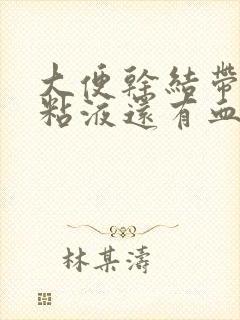 大便幹結帶
粘液還有血
林某濤